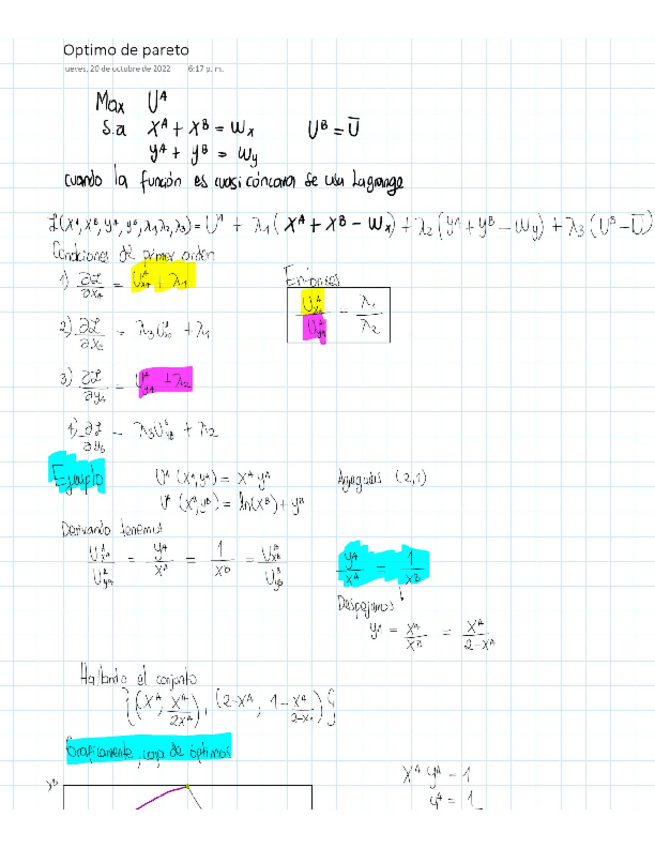 Optimo de pareto
jueves, 20 de octubre de 2022 6:17 p. m.
Max U^A
S.a X^A + X^B = W_x U^B = Ū
y^A + y^B = W_y
cuando la función es cuasi cóncava se usa Lagrange
ℒ(X^A, X^B, y^A, y^B, λ1, λ2, λ3) = U^A + λ1 (X^A + X^B − W_x) + λ2 (y^A + y^B − W_y) + λ3 (U^B − Ū)
Condiciones de primer orden
1) ∂ℒ/∂x_A = U^A_{xA} + λ1
Entonces
U^A_{xA} / U^A_{yA} = λ1 / λ2
2) ∂ℒ/∂x_B = λ3 U^B_{xB} + λ1
3) ∂ℒ/∂y_A = U^A_{yA} + λ2
4) ∂ℒ/∂y_B = λ3 U^B_{yB} + λ2
Ejemplo U^A (X^A, y^A) = X^A y^A Agregados (2,1)
(X^B, y^B) = ln(X^B) + y^B
Derivando tenemos
U^A_{xA} / U^A_{yA} = y^A / X^A = 1 / X^B = U^B_{xB} / U^B_{yB}
y^A / X^A = 1 / X^B
Despejamos
y^A = X^A / X^B = X^A / 2-X^A
Hallando el conjunto
{(X^A, X^A / 2X^A), (2-X^A, 1 - X^A / 2-X^A)}
Graficamente, caja de óptimos
X^A y^A = 1
y^A = 1
X^B